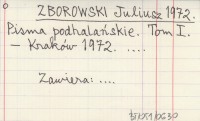 ZBOROWSKI Juliusz 1972.
Pisma podhalańskie. Tom I.
– Kraków 1972. ....
Zawiera: ....